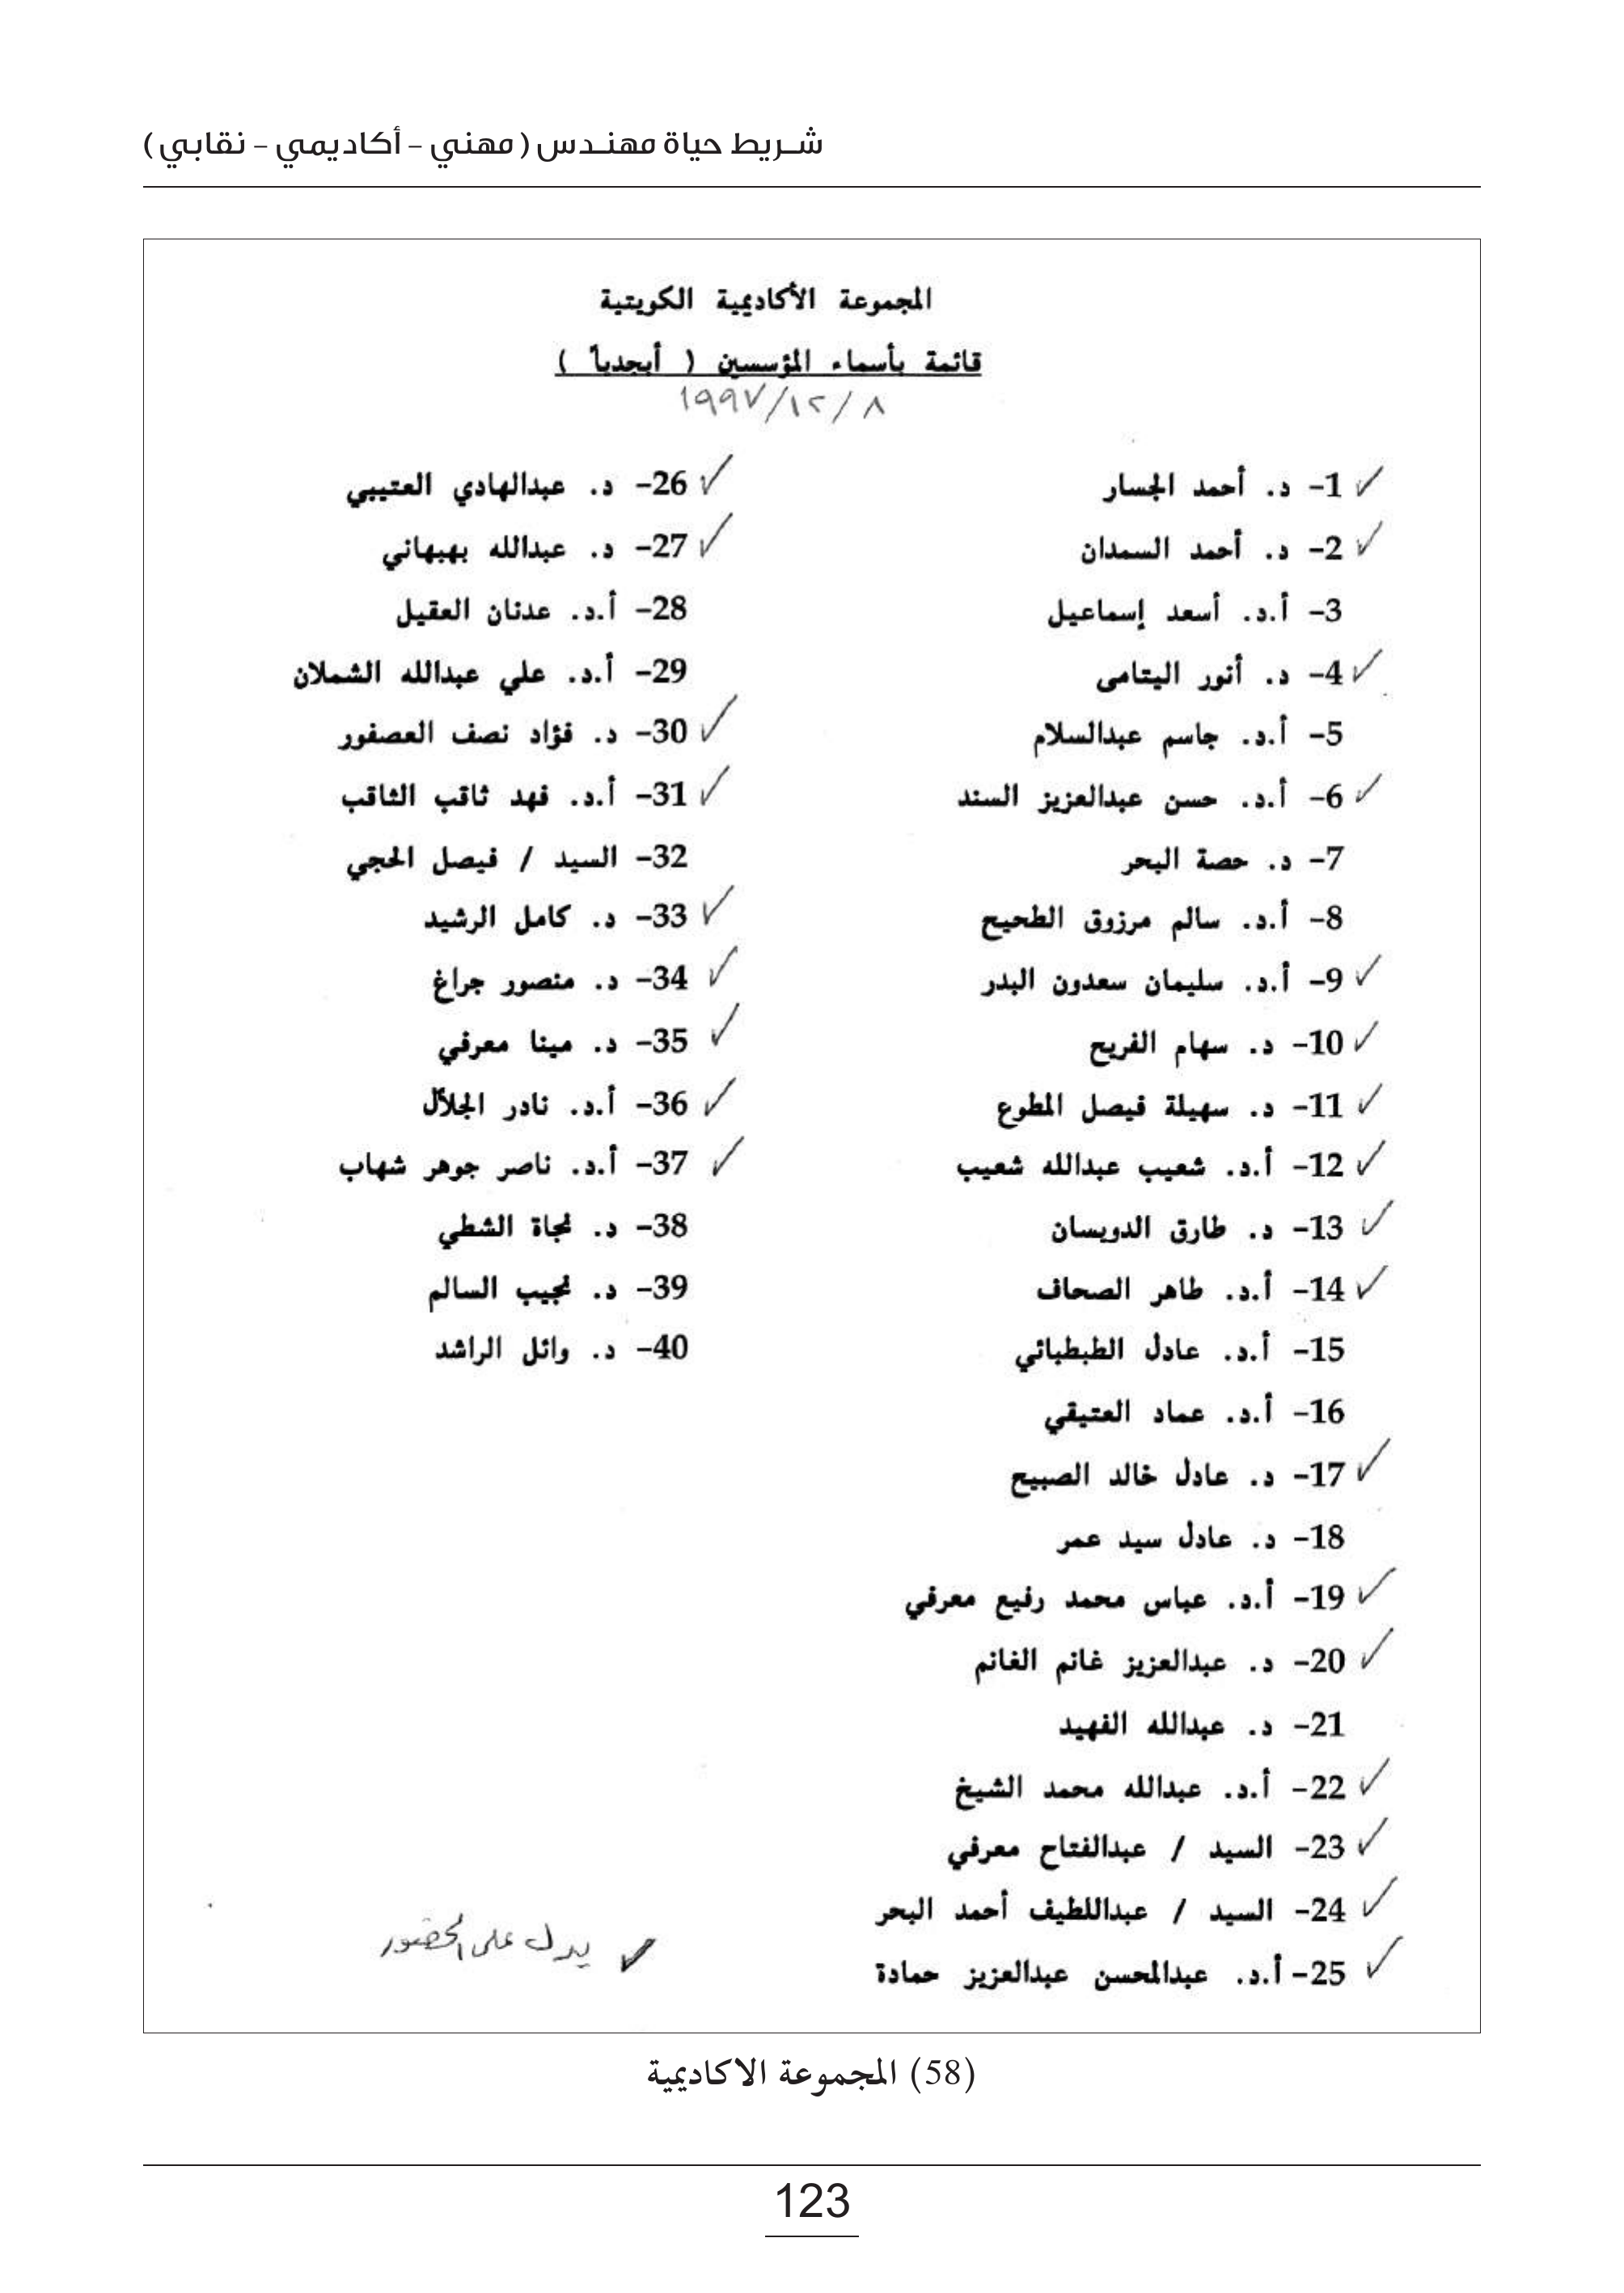 شريط حياة مهندس (مهني - أكاديمي - نقابي)
المجموعة الأكاديمية الكويتية
قائمة بأسماء المؤسسين ( أبجدياً )
١٩٩٧/١٢/٨
✓ 1- د. أحمد الجسار
✓ 2- د. أحمد السمدان
3- أ.د. أسعد إسماعيل
✓ 4- د. أنور اليتامى
5- أ.د. جاسم عبدالسلام
✓ 6- أ.د. حسن عبدالعزيز السند
7- د. حصة البحر
8- أ.د. سالم مرزوق الطحيح
✓ 9- أ.د. سليمان سعدون البدر
✓ 10- د. سهام الفريح
✓ 11- د. سهيلة فيصل المطوع
✓ 12- أ.د. شعيب عبدالله شعيب
✓ 13- د. طارق الدويسان
✓ 14- أ.د. طاهر الصحاف
15- أ.د. عادل الطبطبائي
16- أ.د. عماد العتيقي
✓ 17- د. عادل خالد الصبيح
18- د. عادل سيد عمر
✓ 19- أ.د. عباس محمد رفيع معرفي
✓ 20- د. عبدالعزيز غانم الغانم
21- د. عبدالله الفهيد
✓ 22- أ.د. عبدالله محمد الشيخ
✓ 23- السيد / عبدالفتاح معرفي
✓ 24- السيد / عبداللطيف أحمد البحر
✓ 25- أ.د. عبدالمحسن عبدالعزيز حمادة
✓ 26- د. عبدالهادي العتيبي
✓ 27- د. عبدالله بهبهاني
28- أ.د. عدنان العقيل
29- أ.د. علي عبدالله الشملان
✓ 30- د. فؤاد نصف العصفور
✓ 31- أ.د. فهد ثاقب الثاقب
32- السيد / فيصل الحجي
✓ 33- د. كامل الرشيد
✓ 34- د. منصور جراغ
✓ 35- د. مينا معرفي
✓ 36- أ.د. نادر الجلال
✓ 37- أ.د. ناصر جوهر شهاب
38- د. نجاة الشطي
39- د. نجيب السالم
40- د. وائل الراشد
✓ يدل على الحضور
(58) المجموعة الاكاديمية
123